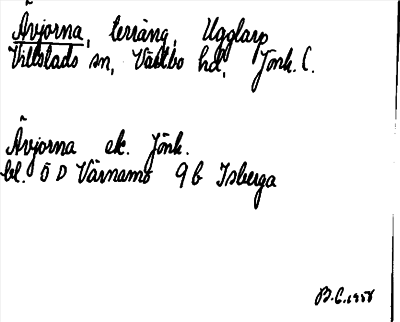 Ävjorna, terräng, Ugglarp
Villstads sn, Västbo hd, Jönk. l.
Ävjorna ek. Jönk.
bl. 5 D Värnamo 9 b Isberga
B.C. 1958